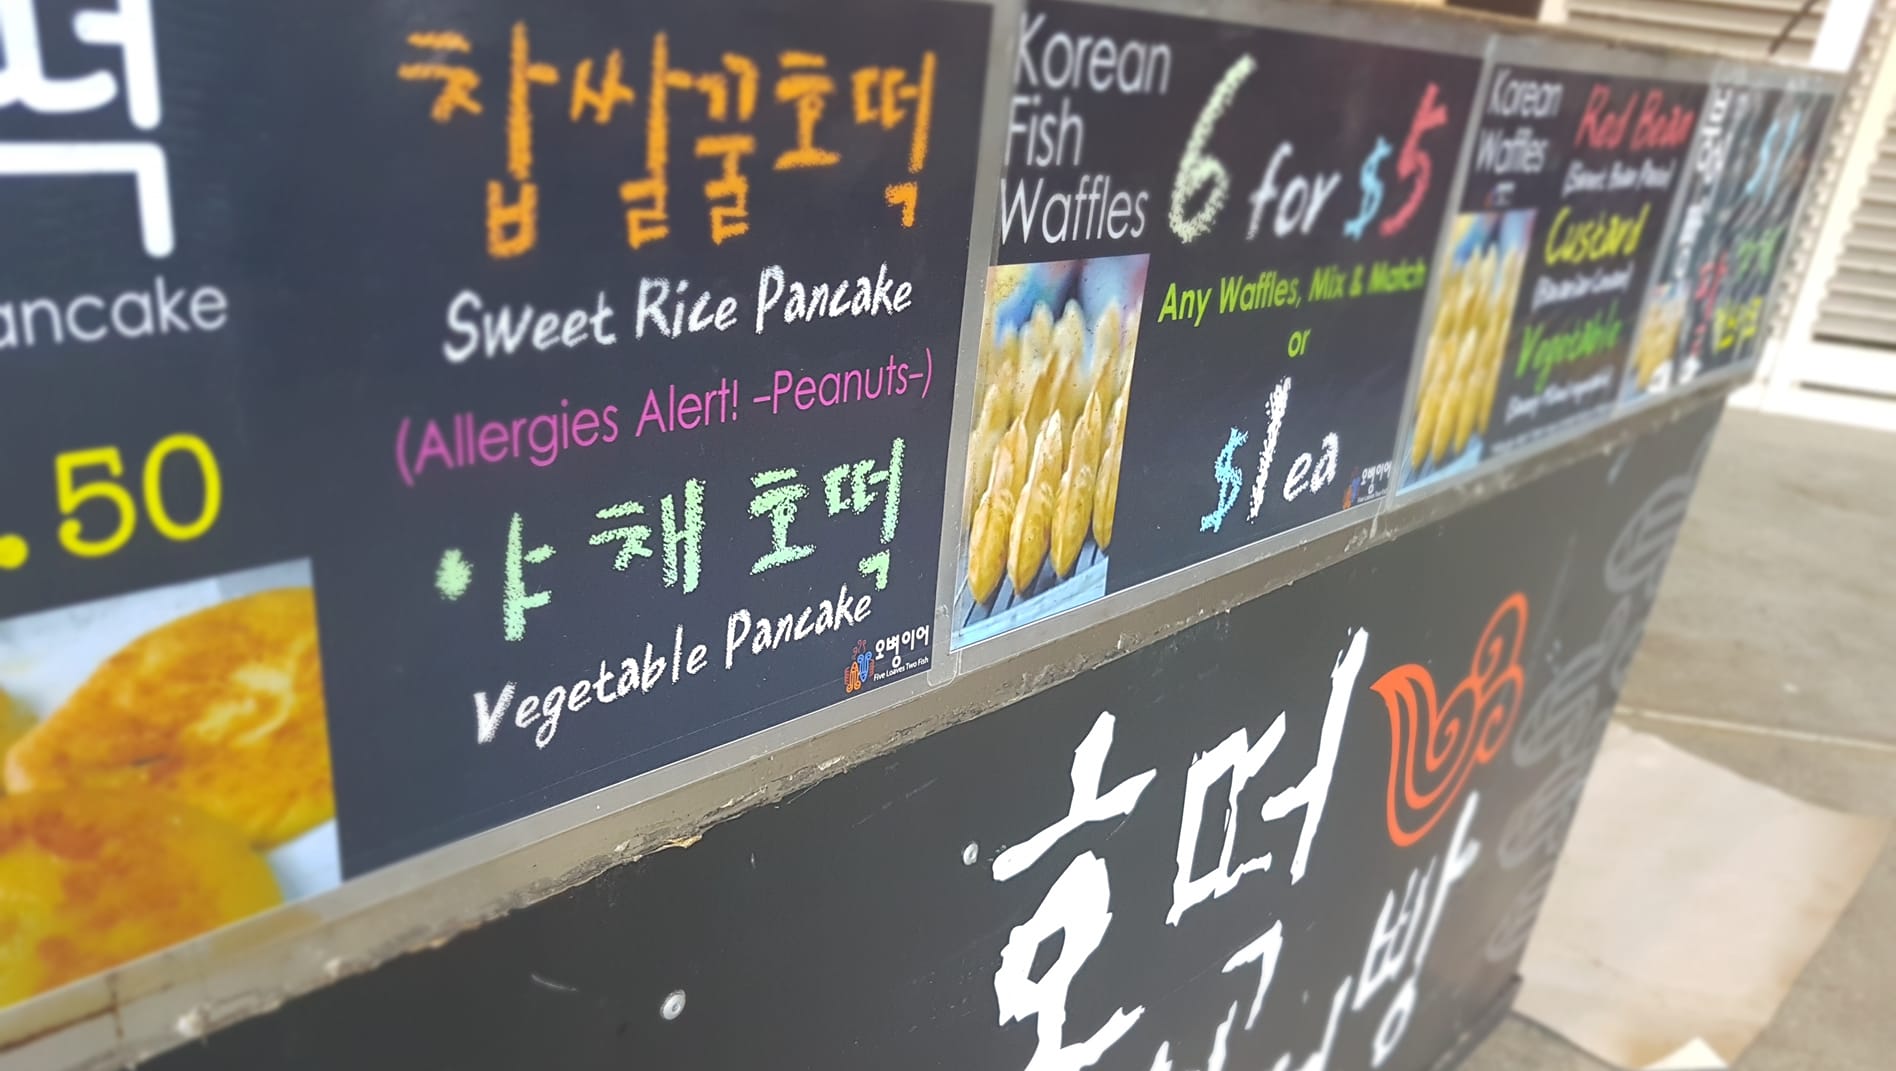 떡
ancake
.50
찹쌀꿀호떡
Sweet Rice Pancake
(Allergies Alert! -Peanuts-)
야채호떡
Vegetable Pancake
오병이어
Five Loaves Two Fish
Korean
Fish
Waffles
6 for $5
Any Waffles, Mix & Match
or
$1ea
오병이어
Korean
Waffles
Red Bean
(Sweet Bean Paste)
Custard
Vegetable
호떡